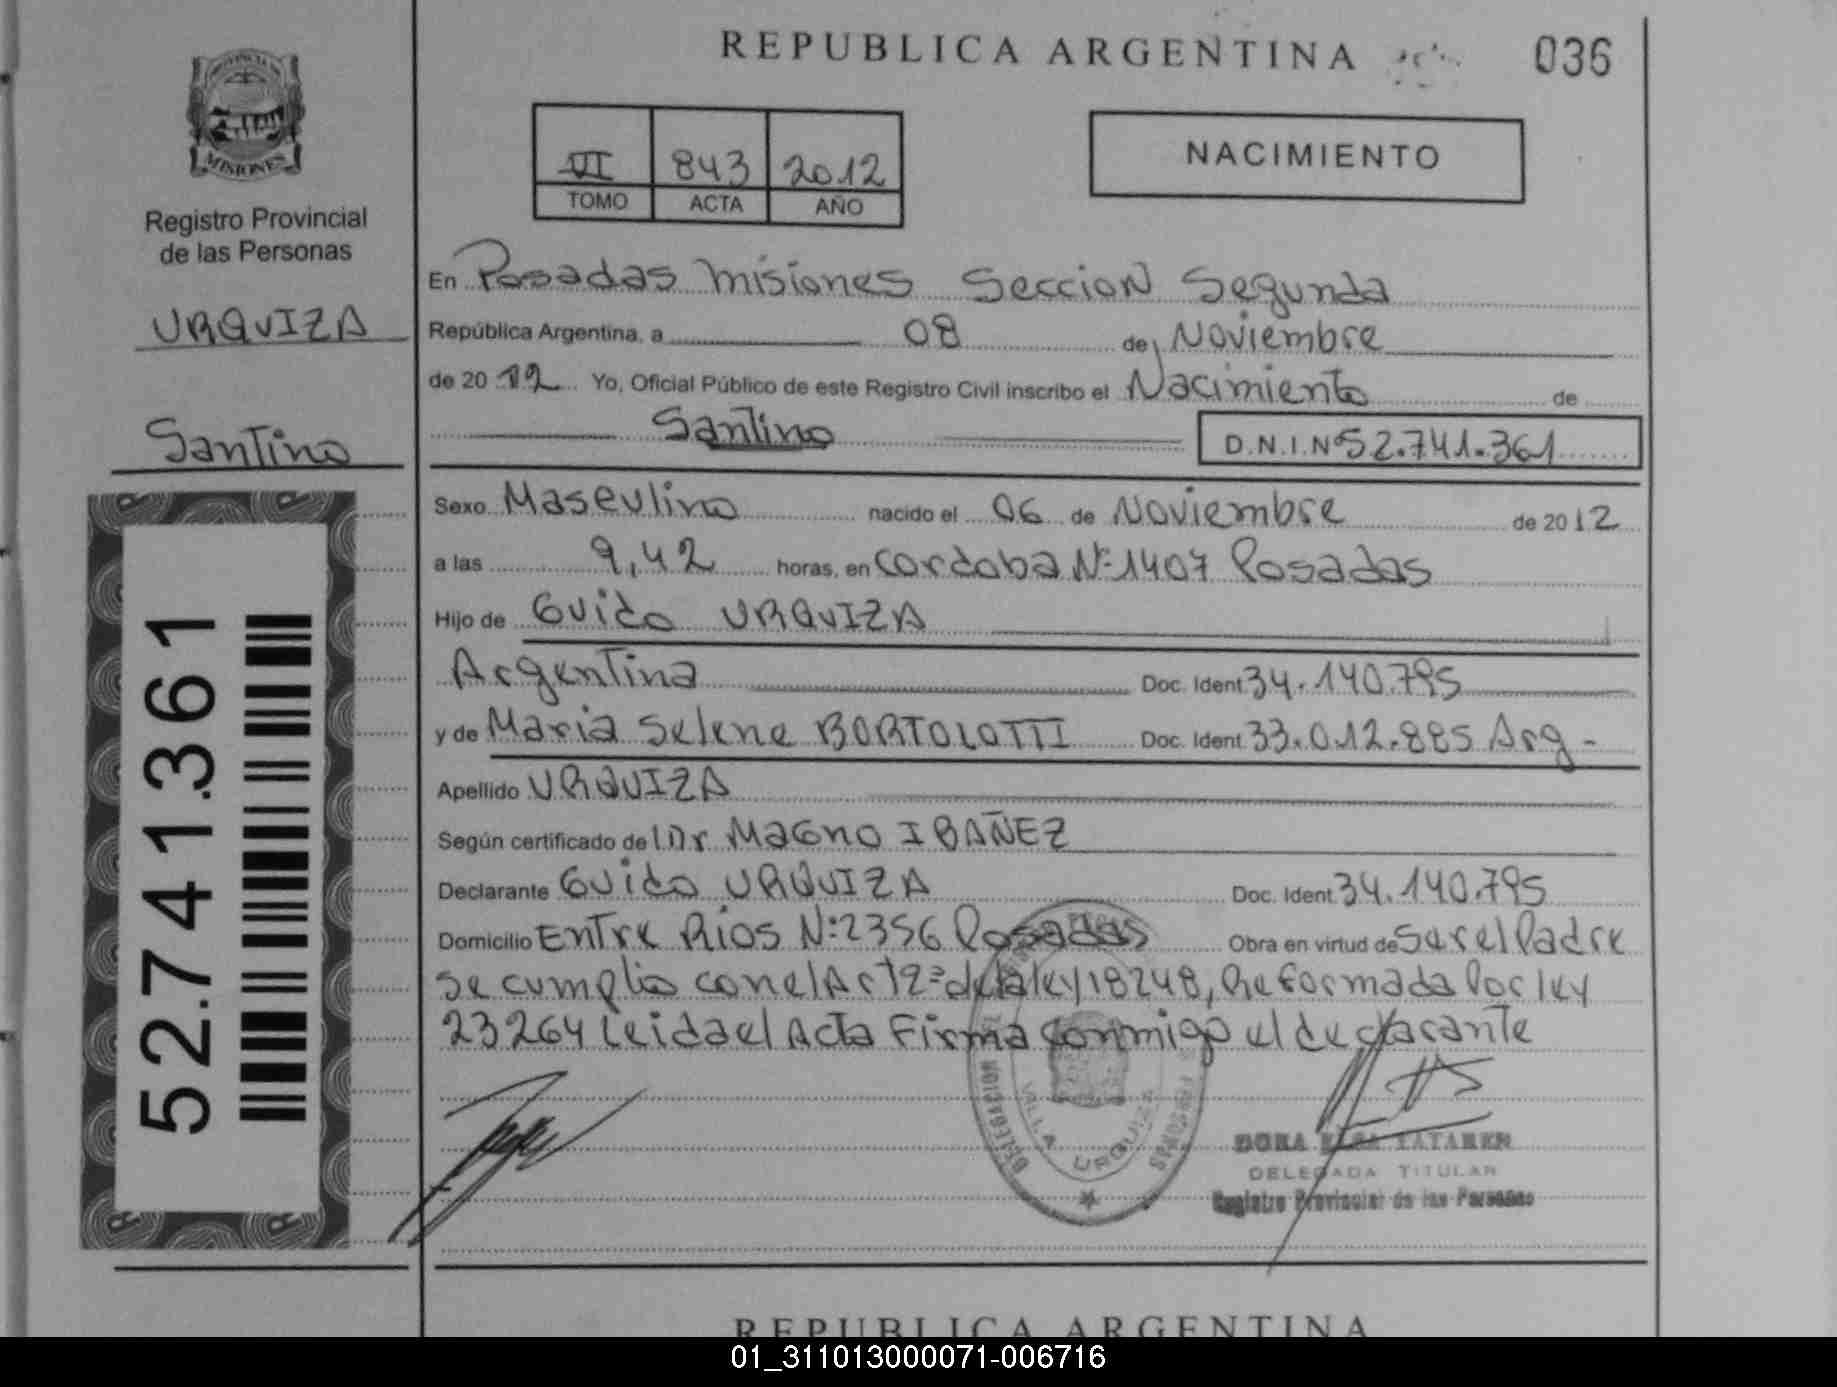 REPUBLICA ARGENTINA
036
PROVINCIA DE
MISIONES
Registro Provincial
de las Personas
URQUIZA
Santino
52.741.361
VI 843 2012
TOMO ACTA AÑO
NACIMIENTO
En Posadas Misiones Seccion Segunda
República Argentina, a 08 de Noviembre
de 20 12 Yo, Oficial Público de este Registro Civil inscribo el Nacimiento de
Santino D.N.I.Nº 52.741.361
Sexo Masculino nacido el 06 de Noviembre de 2012
a las 9,42 horas, en Cordoba Nº 1407 Posadas
Hijo de Guido URQUIZA
Argentina Doc. Ident. 34.140.795
y de Maria Selene BORTOLOTTI Doc. Ident. 33.012.885 Arg-
Apellido URQUIZA
Según certificado de Dr MaGno IBAÑEZ
Declarante Guido URQUIZA Doc. Ident. 34.140.795
Domicilio Entre Rios Nº 2356 Posadas Obra en virtud de Ser el Padre
Se cumplio con el Art 2º de la ley 18248, Reformada Por ley
23264 Leida el Acta Firma conmigo el declarante
DELEGACION
VILLA URQUIZA
PERSONAS
DORA ELSA TATAREN
DELEGADA TITULAR
Registro Provincial de las Personas
REPUBLICA ARGENTINA
01_311013000071-006716